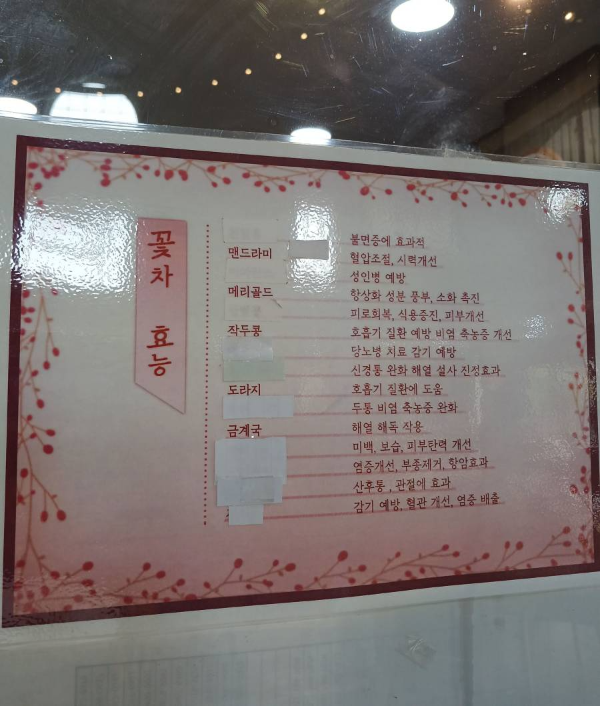 꽃차 효능
불면증에 효과적
맨드라미 혈압조절, 시력개선
성인병 예방
메리골드 항상화 성분 풍부, 소화 촉진
피로회복, 식용증진, 피부개선
작두콩 호흡기 질환 예방 비염 축농증 개선
당노병 치료 감기 예방
신경통 완화 해열 설사 진정효과
도라지 호흡기 질환에 도움
두통 비염 축농증 완화
금계국 해열 해독 작용
미백, 보습, 피부탄력 개선
염증개선, 부종제거, 항암효과
산후통 , 관절에 효과
감기 예방, 혈관 개선, 염증 배출